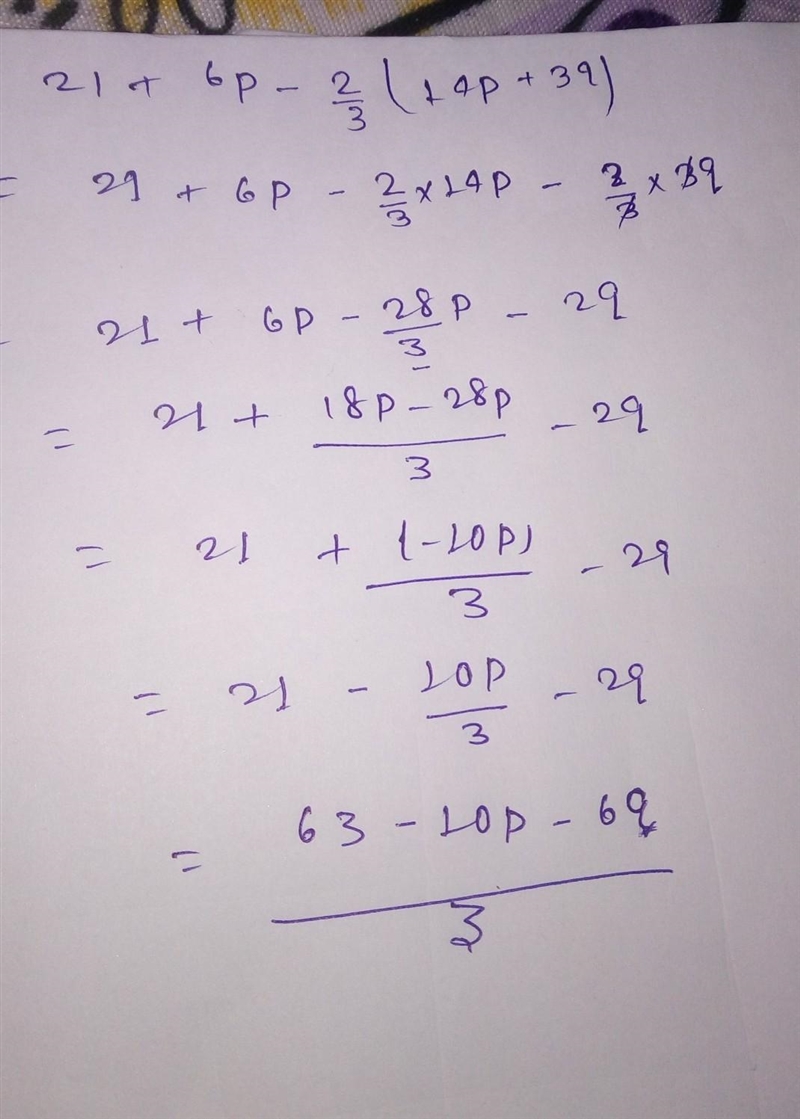 21 + 6p - 2/3 (14p + 3q)
= 29 + 6p - 2/3 × 14p - 2/3 × 3q
- 21 + 6p - 28p/3 - 2q
= 21 + (18p - 28p)/3 - 2q
= 21 + (-10p)/3 - 2q
= 21 - 10p/3 - 2q
= (63 - 10p - 6q)/3